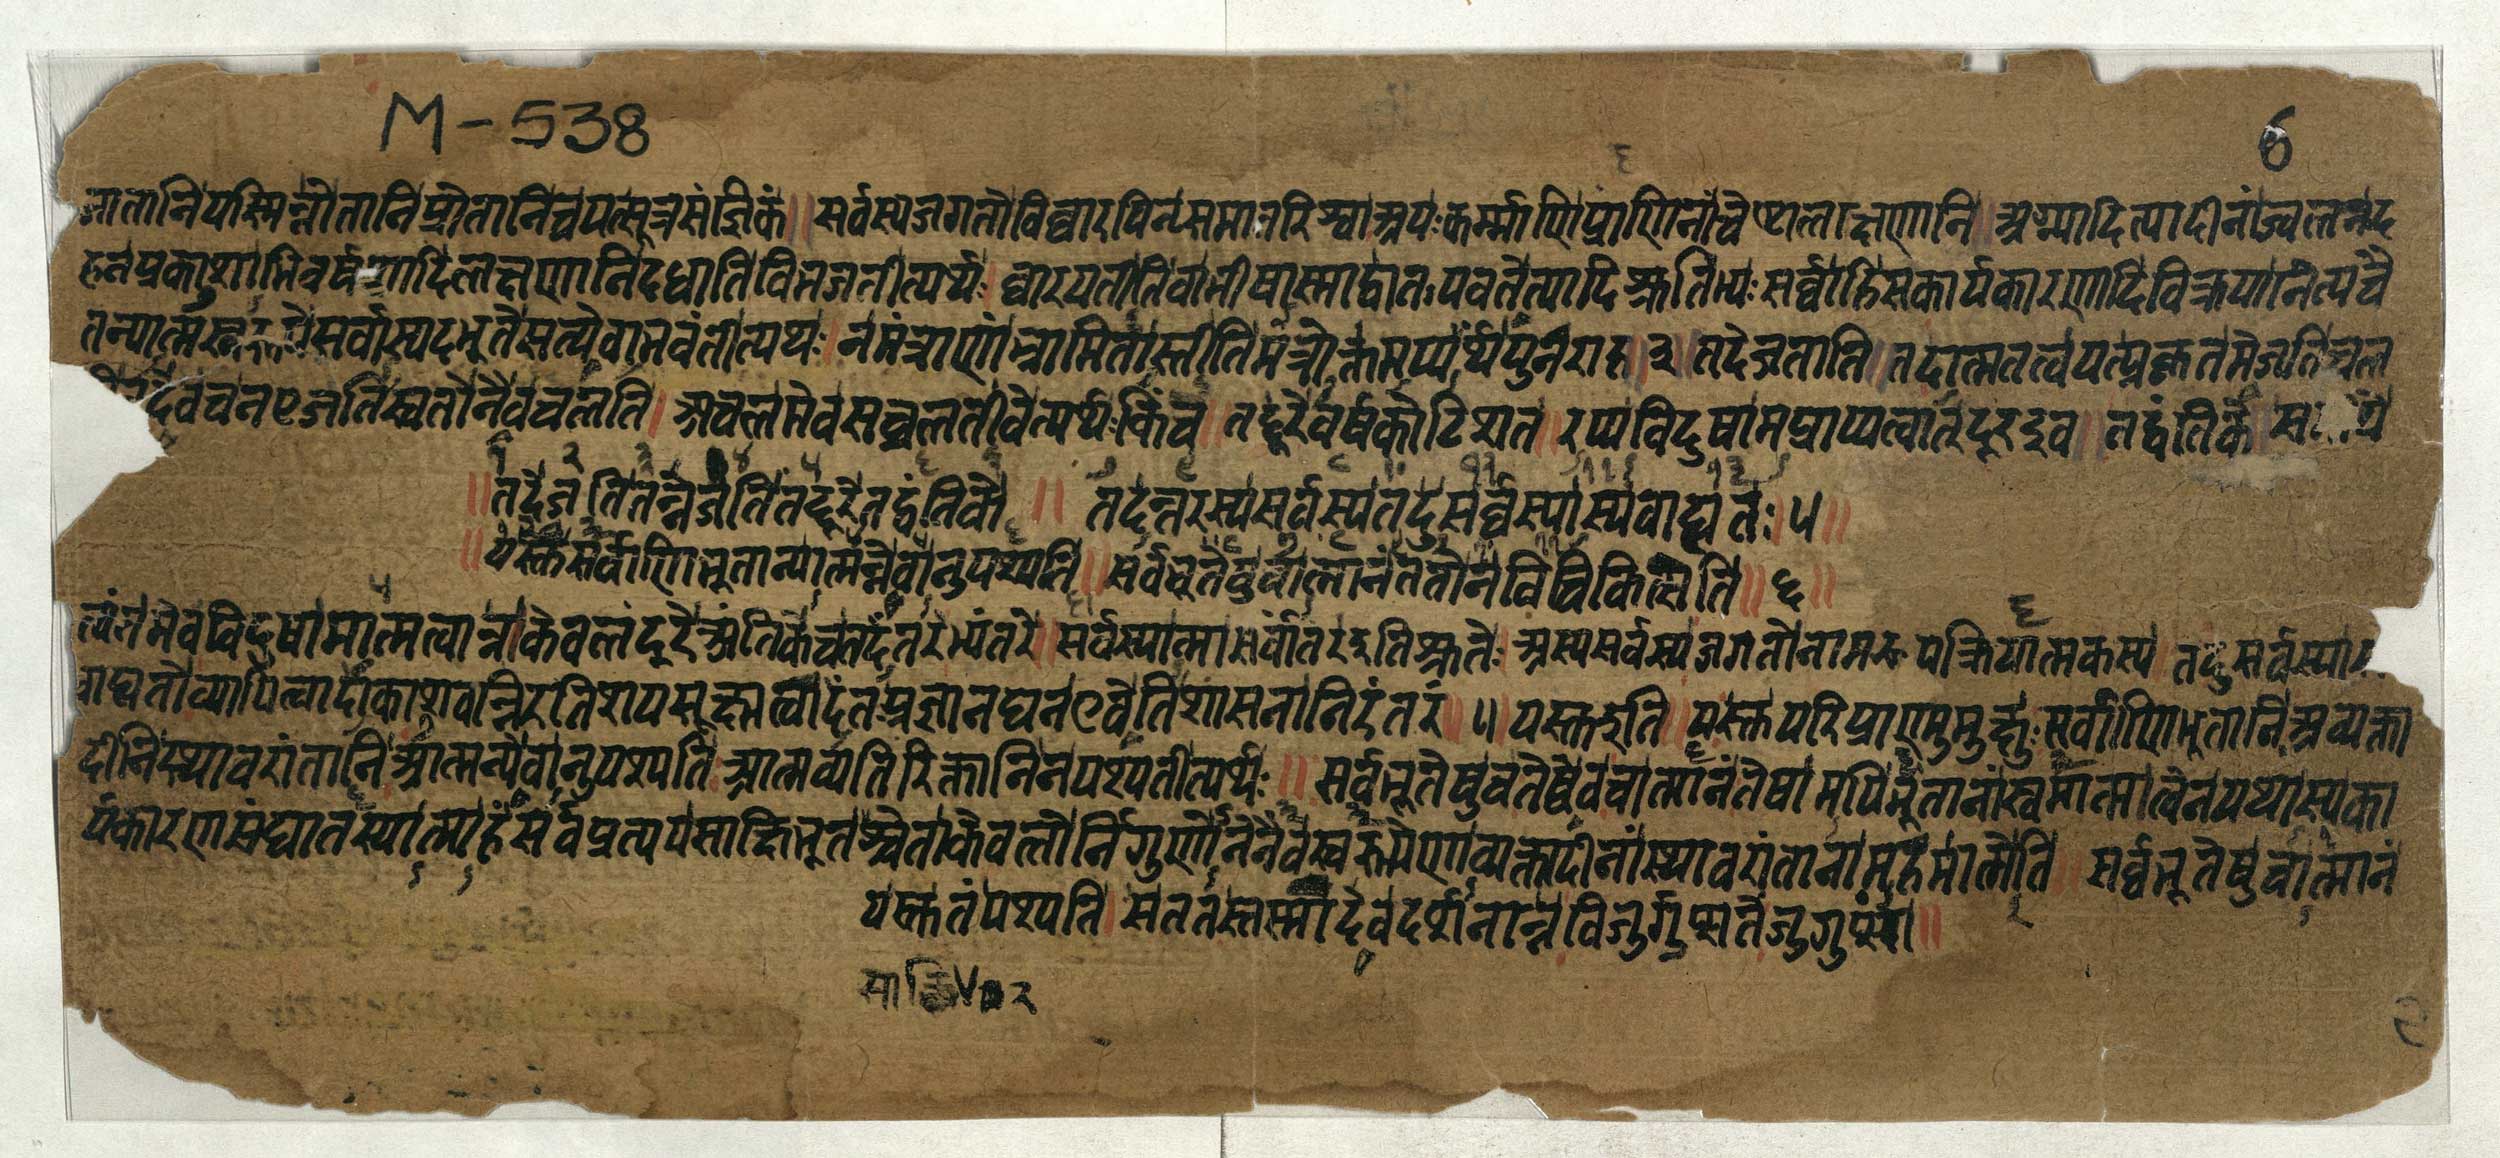 M-538
6
६
जातानियस्मिन्नोतानिप्रोतानिचयत्सूत्रसंज्ञिकं॥सर्वस्यजगतोविधारयितृसमातरिश्वाअपःकर्म्माणिप्राणिनांचेष्टालक्षणानि॥अग्न्यादित्यादीनांज्वलनद
हनप्रकाशाभिवर्षणादिलक्षणानिदधातिविभजतीत्यर्थः।धारयतीतिवाभीषास्माद्वातःपवतेत्यादिश्रुतिभ्यःसर्वाहिसकार्यकारणादिविक्रियानित्यचै
तन्यात्मस्वरूपेसर्वास्पदभूतेसत्येवाभवंतीत्यर्थः।नमंत्राणांजामितास्तीतिमंत्रोक्तमप्यर्थंपुनराह॥४॥तदेजतीति॥तदात्मतत्वंयत्प्रकृतमेजतिचल
देवचनएजतिस्वतोनैवचलति।अचलमेवसच्चलतीवेत्यर्थःकिंच॥तद्दूरेवर्षकोटिशतै॥रप्यविदुषामप्राप्यत्वात्दूरइव॥तद्वंतिके॥स
१ २ ३ ४ ५
॥तदेजतितन्नैजतितद्दूरेतद्वंतिके॥तदन्तरस्यसर्वस्यतदुसर्वस्यास्यबाह्यतः।५॥
॥यस्तुसर्वाणिभूतान्यात्मन्नेवानुपश्यति॥सर्वभूतेषुचात्मानंततोनविचिकित्सति॥६॥
त्यंतमेवविदुषामात्मत्वान्नकेवलंदूरेअंतिकेचतदंतरभ्यंतरे॥सर्वस्यात्मासर्वांतरइतिश्रुतेः।अस्यसर्वस्यजगतोनामरूपक्रियात्मकस्य।तदुसर्वस्या
बाह्यतोव्यापित्वादाकाशवन्निरतिशयसूक्ष्मत्वादंतःप्रज्ञानघनएवेतिशासनानिरंतरं॥५॥यस्तुइति॥यस्तुपरिव्राण्मुमुक्षुःसर्वाणिभूतानिअव्यक्ता
दीनिस्थावरांतानिआत्मन्येवानुपश्यति।आत्मव्यतिरिक्तानिनपश्यतीत्यर्थः॥सर्वभूतेषुचतेष्वेवचात्मानंतेषामपिभूतानांस्वमात्मात्वेनयथास्यका
र्यकारणसंघातस्यात्माहंसर्वप्रत्ययसाक्षिभूतश्चेताकेवलोर्निगुणोनेनैवस्वरूपेणाव्यक्तादीनांस्थावरांतानामहमात्मेति॥सर्वभूतेषुचात्मानं
यस्तुतंपश्यति।सततस्तस्मादेवदर्शनान्नविजुगुप्सतेजुगुप्सां॥